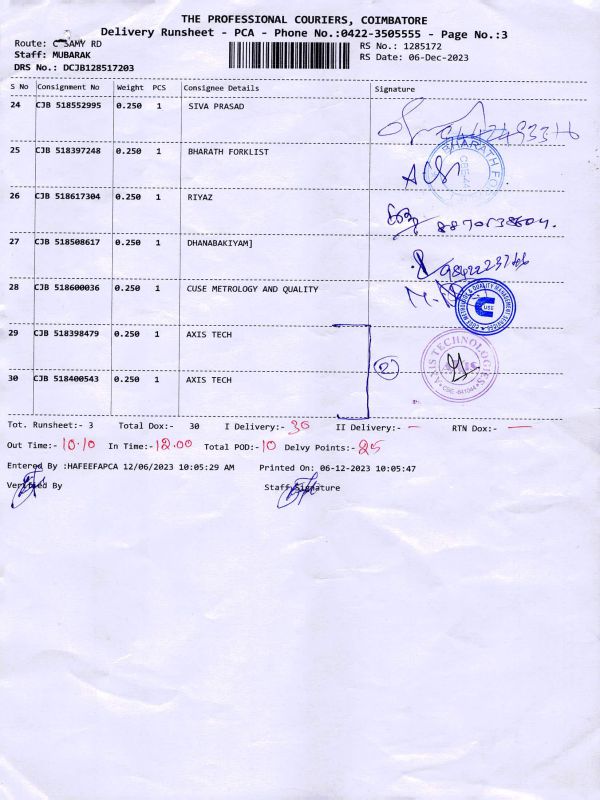 THE PROFESSIONAL COURIERS, COIMBATORE
Delivery Runsheet - PCA - Phone No.:0422-3505555 - Page No.:3
Route: C SAMY RD
RS No.: 1285172
Staff: MUBARAK
RS Date: 06-Dec-2023
DRS No.: DCJB128517203
S No Consignment No Weight PCS Consignee Details Signature
24 CJB 518552995 0.250 1 SIVA PRASAD
25 CJB 518397248 0.250 1 BHARATH FORKLIST
26 CJB 518617304 0.250 1 RIYAZ
27 CJB 518508617 0.250 1 DHANABAKIYAM]
28 CJB 518600036 0.250 1 CUSE METROLOGY AND QUALITY
29 CJB 518398479 0.250 1 AXIS TECH
AXIS TECHNOLOGIES
2
30 CJB 518400543 0.250 1 AXIS TECH
Tot. Runsheet:- 3 Total Dox:- 30 I Delivery:- 30 II Delivery:- — RTN Dox:- —
Out Time:- 10.10 In Time:- 12.00 Total POD:- 10 Delvy Points:- 25
Entered By :HAFEEFAPCA 12/06/2023 10:05:29 AM Printed On: 06-12-2023 10:05:47
Verified By Staff Signature